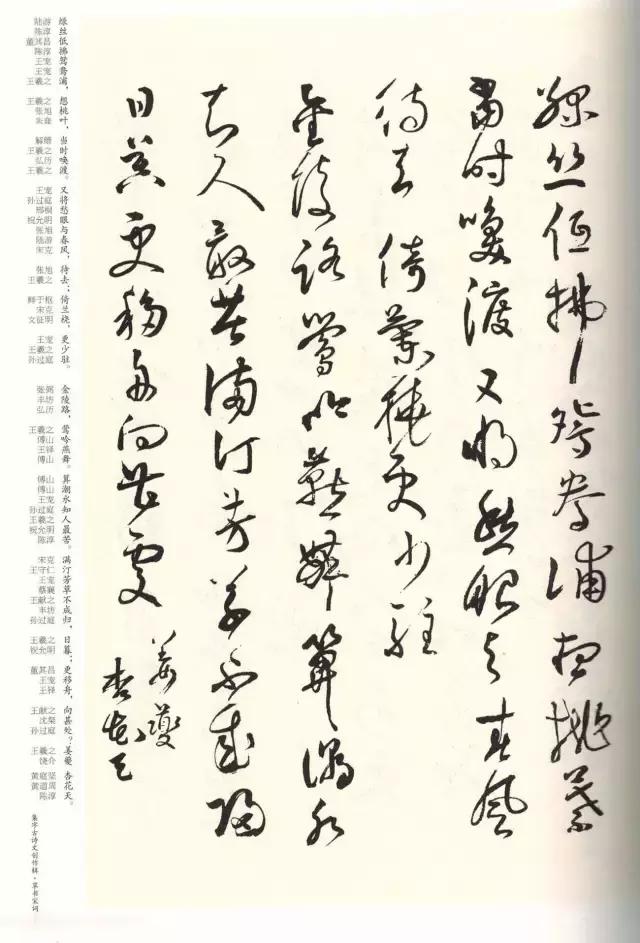 綠絲低拂鴛鴦浦想桃葉
當時喚渡又將愁眼與春風
待去倚蘭橈更少駐
金陵路鶯吟燕舞算潮水
知人最苦滿汀芳草不成歸
日暮更移舟向甚處
姜夔
杏花天
绿丝低拂鸳鸯浦，想桃叶，当时唤渡。又将愁眼与春风，待去；倚兰桡，更少驻。金陵路，莺吟燕舞。算潮水知人最苦。满汀芳草不成归，日暮；更移舟，向甚处？姜夔 杏花天。
陆游 陈淳 董其昌 陈淳 王宠 王宠 王羲之 王羲之 张旭 朱耷 解缙 王羲之 弘历 王羲之 王宠 孙过庭 邢侗 祝允明 张旭 陆游 宋克 张旭 王羲之 鲜于枢 宋克 文征明 王宠 王羲之 孙过庭 张弼 丰坊 弘历 王羲之 傅山 王铎 傅山 傅山 傅山 王宠 孙过庭 王羲之 祝允明 陈淳 宋克 王守仁 王宠 蔡襄 王献之 丰坊 孙过庭 王羲之 祝允明 董其昌 王宠 王铎 王献之 沈粲 孙过庭 王羲之 饶介 黄庭坚 黄道周 陈淳
集字古诗文创作辑·草书宋词